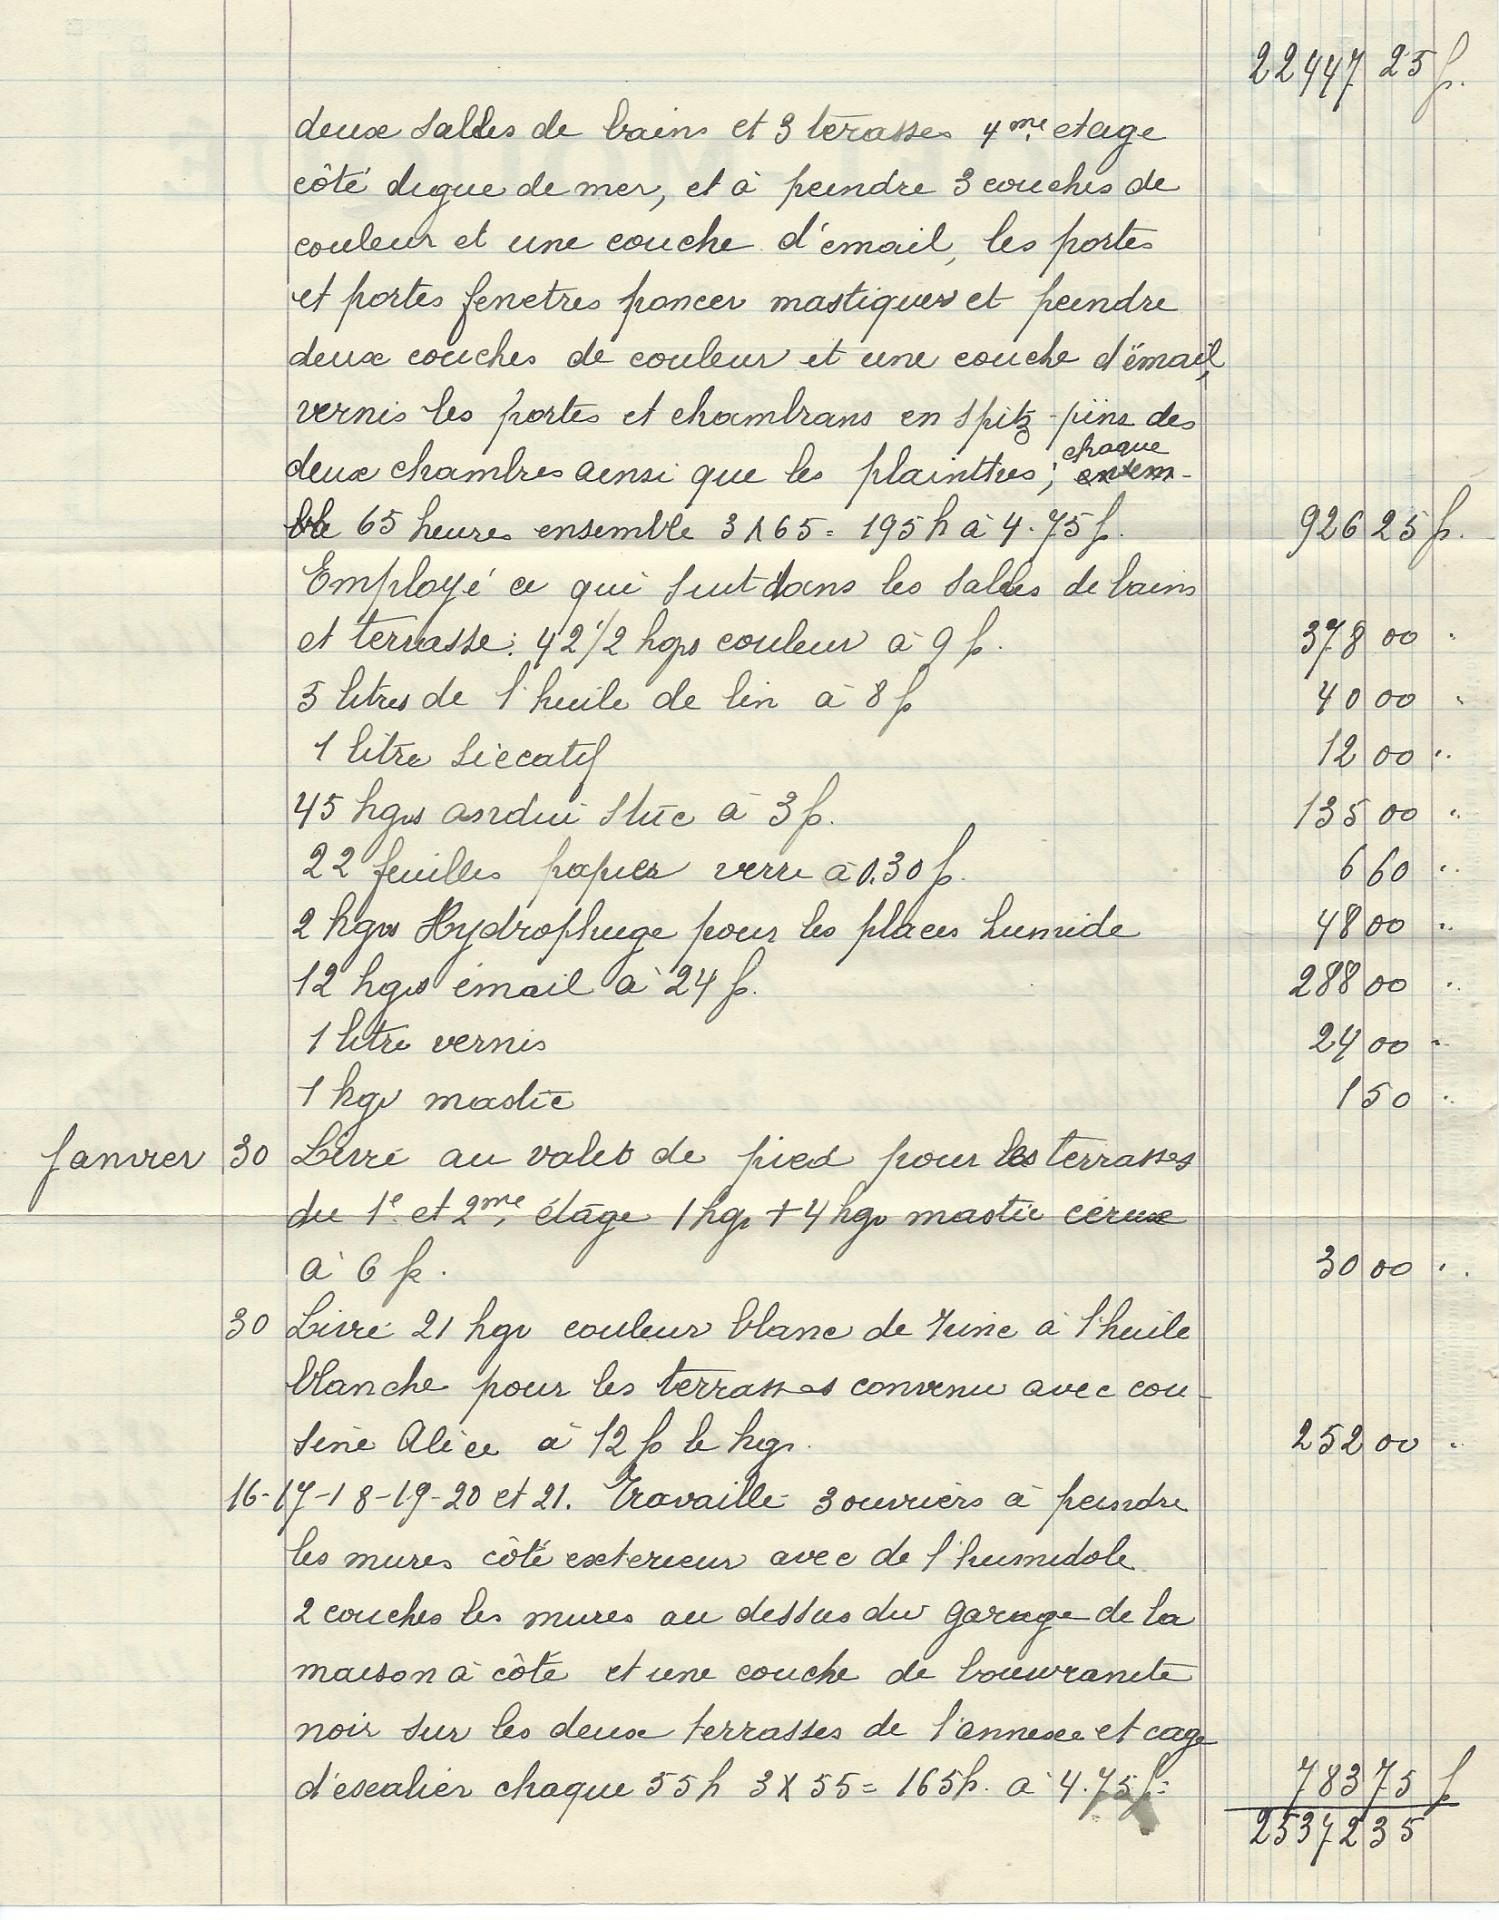 22447 25 f.
deux salles de bains et 3 terasses 4me etage
côté digue de mer, et à peindre 3 couches de
couleur et une couche d'émail, les portes
et portes fenetres poncer mastiquer et peindre
deux couches de couleur et une couche d'émail,
vernis les portes et chambrans en spitz-pins des
deux chambres ainsi que les plainttres; chaque
ble 65 heures ensemble 3 X 65 = 195 h à 4.75 f. 926 25 f.
Employé ce qui suit dans les salles de bains
et terrasse: 42 1/2 kgs couleur à 9 f. 378 00 "
5 litres de l'huile de lin à 8 f 40 00 "
1 litre siccatif 12 00 "
45 kgs anduit stuc à 3 f. 135 00 "
22 feuilles papier verre à 0.30 f. 6 60 "
2 kgs Hydrophuge pour les places humide 48 00 "
12 kgs émail à 24 f. 288 00 "
1 litre vernis 24 00 "
1 kgr mastic 1 50 "
Janvier 30 Livré au valet de pied pour les terrasses
du 1e et 2me étage 1 kgr + 4 kgr mastic céruse
à 6 fr. 30 00 "
30 Livré 21 kgr couleur blanc de zinc à l'huile
blanche pour les terrasses convenu avec cou-
sine Alice à 12 f le kgr. 252 00 "
16-17-18-19-20 et 21. Travaillé 3 ouvriers à peindre
les mures côté exterieur avec de l'humidole
2 couches les mures au dessus du garage de la
maison à côté et une couche de bouvranite
noir sur les deux terrasses de l'annexe et cage
d'escalier chaque 55 h 3 X 55 = 165 h. à 4.75 f = 783 75 f
25372 35